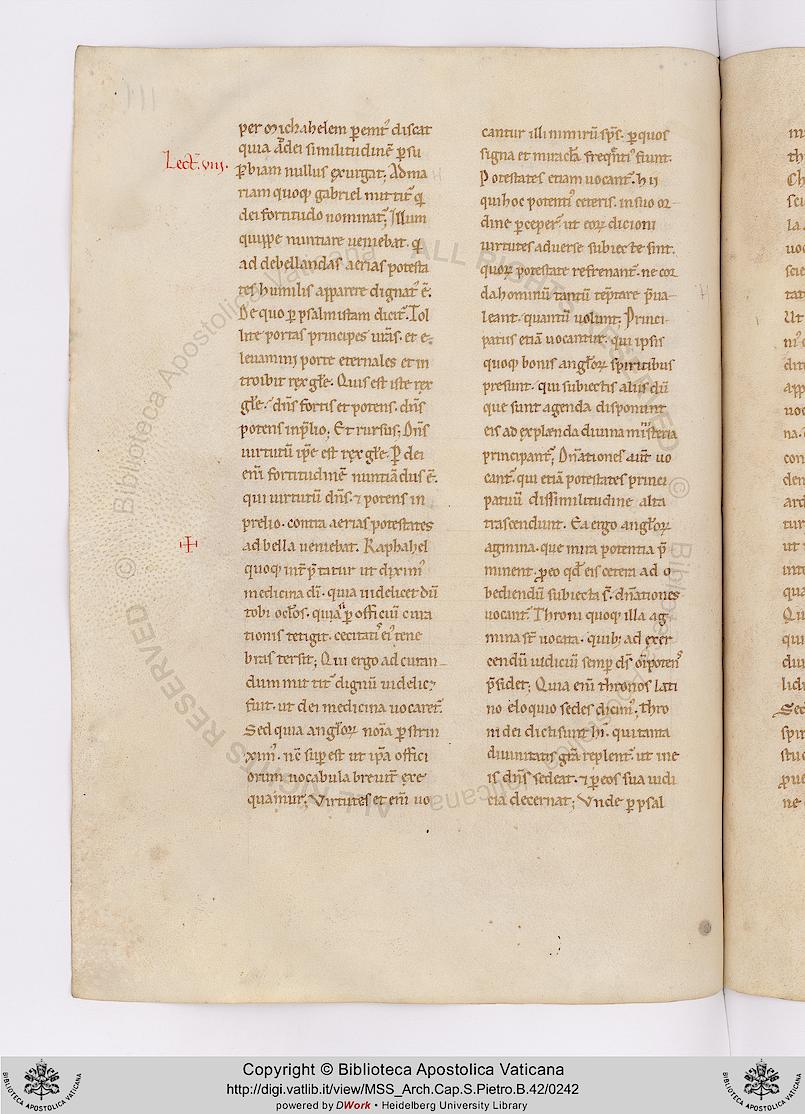 Lect. viii.
per michahelem pemt᷑ discat
quia ad dei similitudinē psu
pbiam nullus exurgat; Ad ma
riam quoq; gabriel mittit᷑ qi
dei fortitudo nominat᷑; Illum
quippe nuntiare veniebat. qi
ad debellandas aerias potesta
tes humilis apparere dignat᷑ ē.
De quo p psalmistam dicit᷑. Tol
lite portas principes vrās. et e
levamini porte eternales et in
troibit rex glē. Quis est iste rex
glē. dn̄s fortis et potens. dn̄s
potens in plio; Et rursus; Dn̄s
virtutū ipe est rex glē. P dei
enī fortitudinē nuntiādus ē.
qui virtutū dn̄s. ⁊ potens in
prelio. contra aerias potestates
ad bella veniebat. Raphahel
quoq; int̄ptatur ut diximꝰ
medicina dī. quia videlicet dū
tobi oclōs. quia p officiū cura
tionis tetigit. cecitatis eiꝰ tene
bras tersit; Qui ergo ad curan
dum mittit᷑ dignū videlicꝫ
fuit. ut dei medicina vocaret᷑.
Sed quia angloꝝ noīa pstrin
ximꝰ. nc̄ supest ut ipa offici
orum vocabula brevit᷑ exe
quamur; Virtutes etenī vo
cantur illi nimirū sps̄. p quos
signa et miracla freqn̄tiꝰ fiunt.
Potestates etiam vocant᷑. hii
qui hoc potentiꝰ ceteris. in suo or
dine pceper᷑. ut eoꝝ dicioni
virtutes adverse subiecte sint.
quoꝝ potestate refrenant᷑. ne cor
da hominū tantū temptare pva
leant. quantū volunt; Princi
patus etiā vocantur. qui ipsis
quoq; bonis angloꝝ spiritibus
presunt. qui subiectis aliis dū
que sunt agenda disponunt
eis ad explenda divina misteria
principant᷑; Dn̄ationes aut̄ vo
cant᷑. qui etiā potestates princi
patuū dissimilitudine alta
trascendunt. Ea ergo angloꝝ
agmina. que mira potentia p̄
minent. p eo qd̄ eis cetera ad o
bediendū subiecta st̄. dn̄ationes
vocant᷑. Throni quoq; illa ag
mina st̄ vocata. quibꝫ ad exer
cendū iudiciū semp ds̄ omīpotens
p̄sidet; Quia enī thronos lati
no eloquio sedes dicimꝰ; thro
ni dei dicti sunt hī. qui tanta
divinitatis grā replent᷑. ut in e
is dn̄s sedeat. ⁊ p eos sua iudi
cia decernat; Unde p psal
Copyright © Biblioteca Apostolica Vaticana
http://digi.vatlib.it/view/MSS_Arch.Cap.S.Pietro.B.42/0242
powered by DWork • Heidelberg University Library